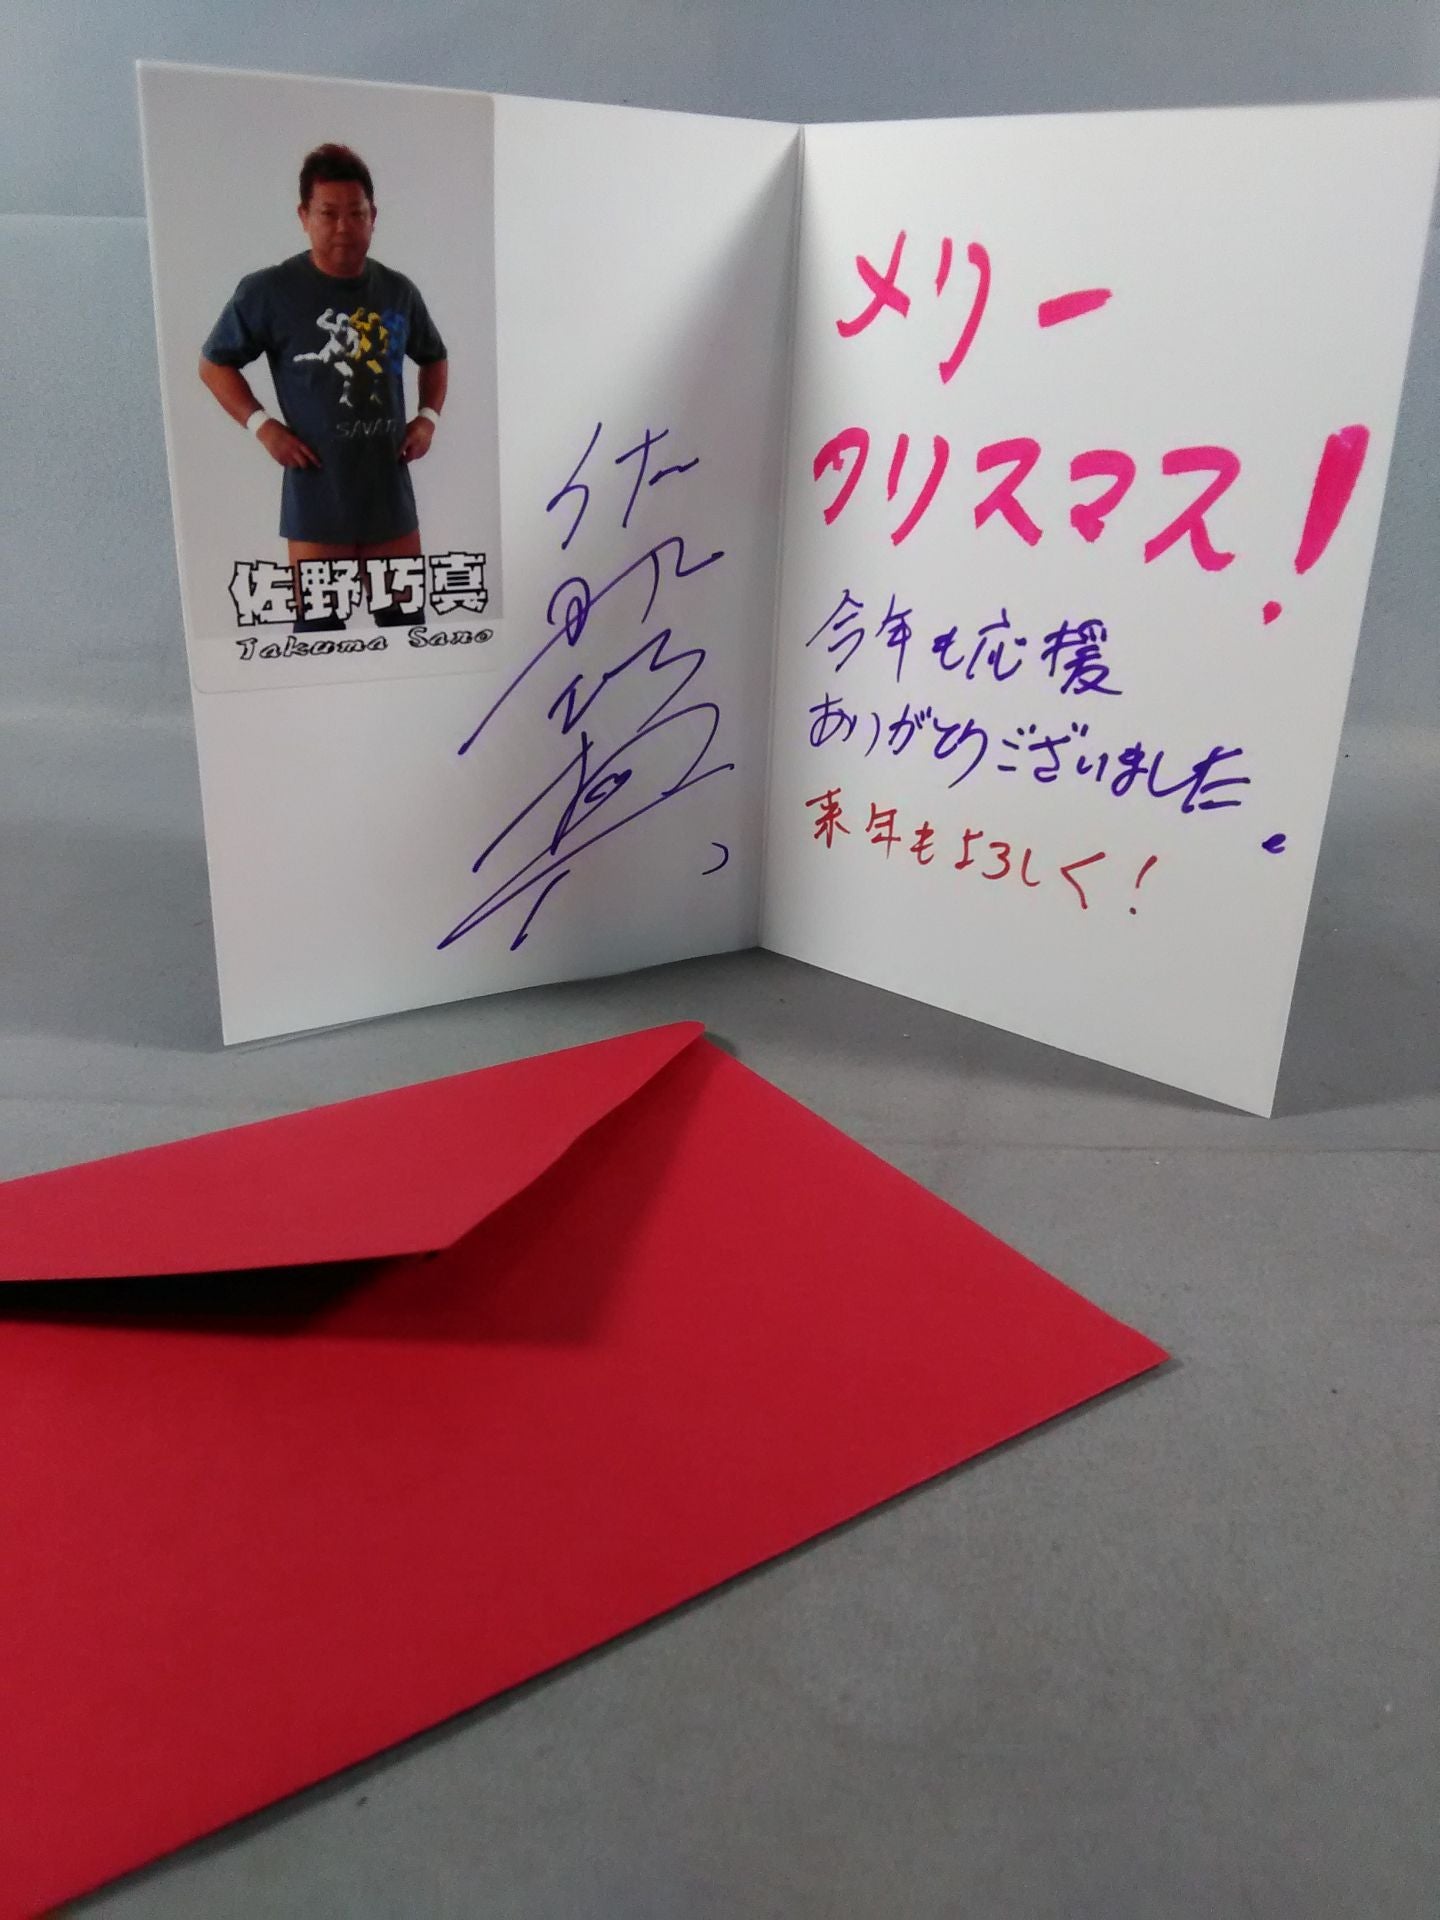 SAVATE
佐野巧真
Takuma Sano
佐
野
巧
真
メリー
クリスマス!
今年も応援
ありがとうございました。
来年もよろしく!